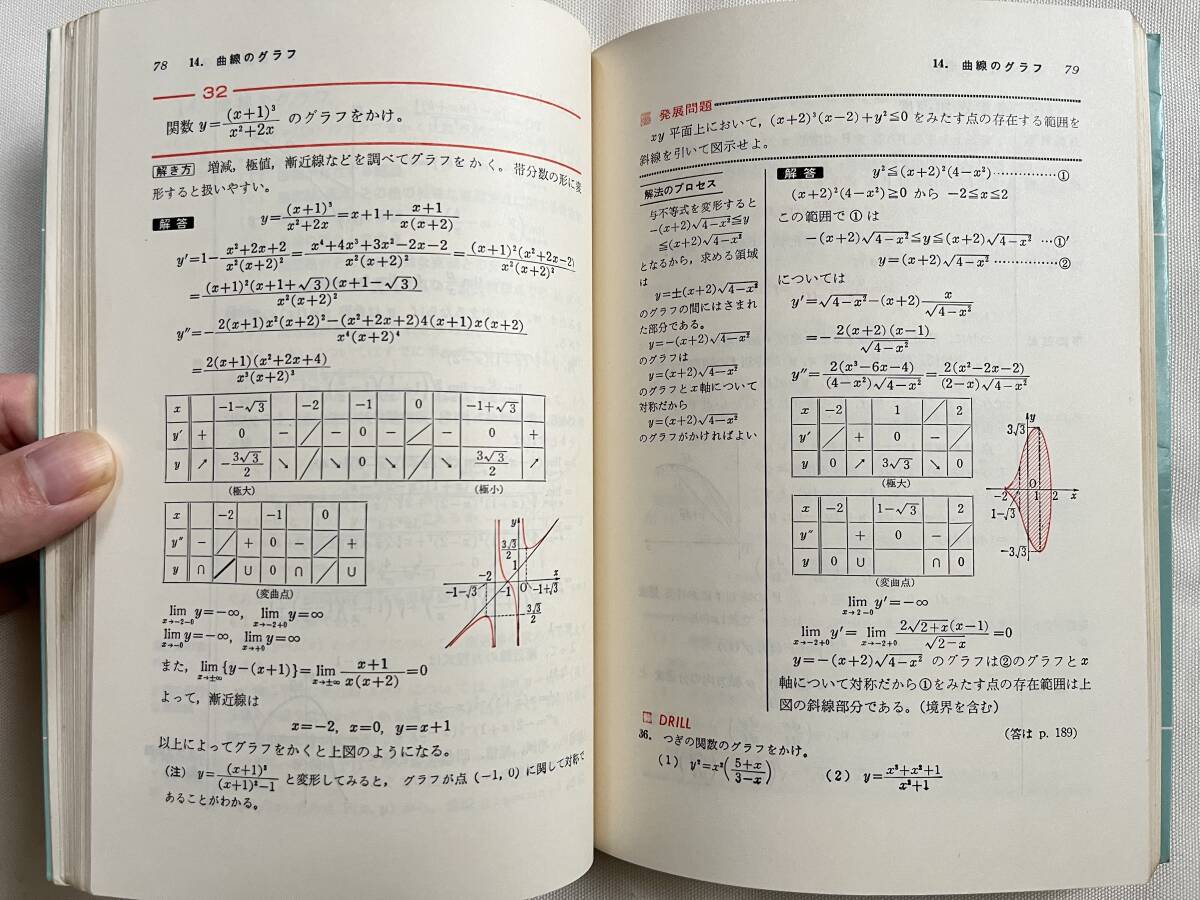 78 14. 曲線のグラフ
32
関数 y=(x+1)³/(x²+2x) のグラフをかけ。
解き方 増減，極値，漸近線などを調べてグラフをかく。帯分数の形に変
形すると扱いやすい。
解答 y=(x+1)³/(x²+2x)=x+1+(x+1)/(x(x+2))
y′=1-(x²+2x+2)/(x²(x+2)²)=(x⁴+4x³+3x²-2x-2)/(x²(x+2)²)=((x+1)²(x²+2x-2))/(x²(x+2)²)
=((x+1)²(x+1+√3)(x+1-√3))/(x²(x+2)²)
y″=-(2(x+1)x²(x+2)²-(x²+2x+2)4(x+1)x(x+2))/(x⁴(x+2)⁴)
=(2(x+1)(x²+2x+4))/(x³(x+2)³)
x -1-√3 -2 -1 0 -1+√3
y′ + 0 - ／ - 0 - ／ - 0 +
y ↗ -3√3/2 ↘ ／ ↘ 0 ↘ ／ ↘ 3√3/2 ↗
(極大) (極小)
x -2 -1 0
y″ - ／ + 0 - ／ +
y ∩ ／ ∪ 0 ∩ ／ ∪
(変曲点)
y
3√3/2
1
-2
x
-1-√3
-1
O
-1+√3
3√3/2
lim[x→-2-0] y=-∞, lim[x→-2+0] y=∞
lim[x→-0] y=-∞, lim[x→+0] y=∞
また，lim[x→±∞]{y-(x+1)}=lim[x→±∞] (x+1)/(x(x+2))=0
よって，漸近線は
x=-2, x=0, y=x+1
以上によってグラフをかくと上図のようになる。
(注) y=(x+1)³/((x+1)²-1) と変形してみると，グラフが点(-1, 0)に関して対称で
あることがわかる。
14. 曲線のグラフ 79
発展問題
xy 平面上において，(x+2)³(x-2)+y²≦0 をみたす点の存在する範囲を
斜線を引いて図示せよ。
解法のプロセス
与不等式を変形すると
-(x+2)√(4-x²)≦y
≦(x+2)√(4-x²)
となるから，求める領域
は
y=±(x+2)√(4-x²)
のグラフの間にはさまれ
た部分である。
y=-(x+2)√(4-x²)
のグラフは
y=(x+2)√(4-x²)
のグラフとx軸について
対称だから
y=(x+2)√(4-x²)
のグラフがかければよい
解答 y²≦(x+2)²(4-x²)……………①
(x+2)²(4-x²)≧0 から -2≦x≦2
この範囲で①は
-(x+2)√(4-x²)≦y≦(x+2)√(4-x²) …①′
y=(x+2)√(4-x²)……………②
については
y′=√(4-x²)-(x+2)x/√(4-x²)
=-(2(x+2)(x-1))/√(4-x²)
y″=(2(x³-6x-4))/((4-x²)√(4-x²))=(2(x²-2x-2))/((2-x)√(4-x²))
x -2 1 ／ 2
y′ ／ + 0 - ／
y 0 ↗ 3√3 ↘ 0
(極大)
x -2 1-√3 2
y″ + 0 -
y 0 ∪ ∩ 0
(変曲点)
y
3√3
O
-2 1 2
x
1-√3
-3√3
lim[x→2-0] y′=-∞
lim[x→-2+0] y′=lim[x→-2+0] (2√(2+x)(x-1))/√(2-x)=0
y=-(x+2)√(4-x²) のグラフは②のグラフとx
軸について対称だから①をみたす点の存在範囲は上
図の斜線部分である。(境界を含む)
DRILL
36. つぎの関数のグラフをかけ。 (答は p. 189)
(1) y²=x²((5+x)/(3-x)) (2) y=(x³+x²+1)/(x²+1)